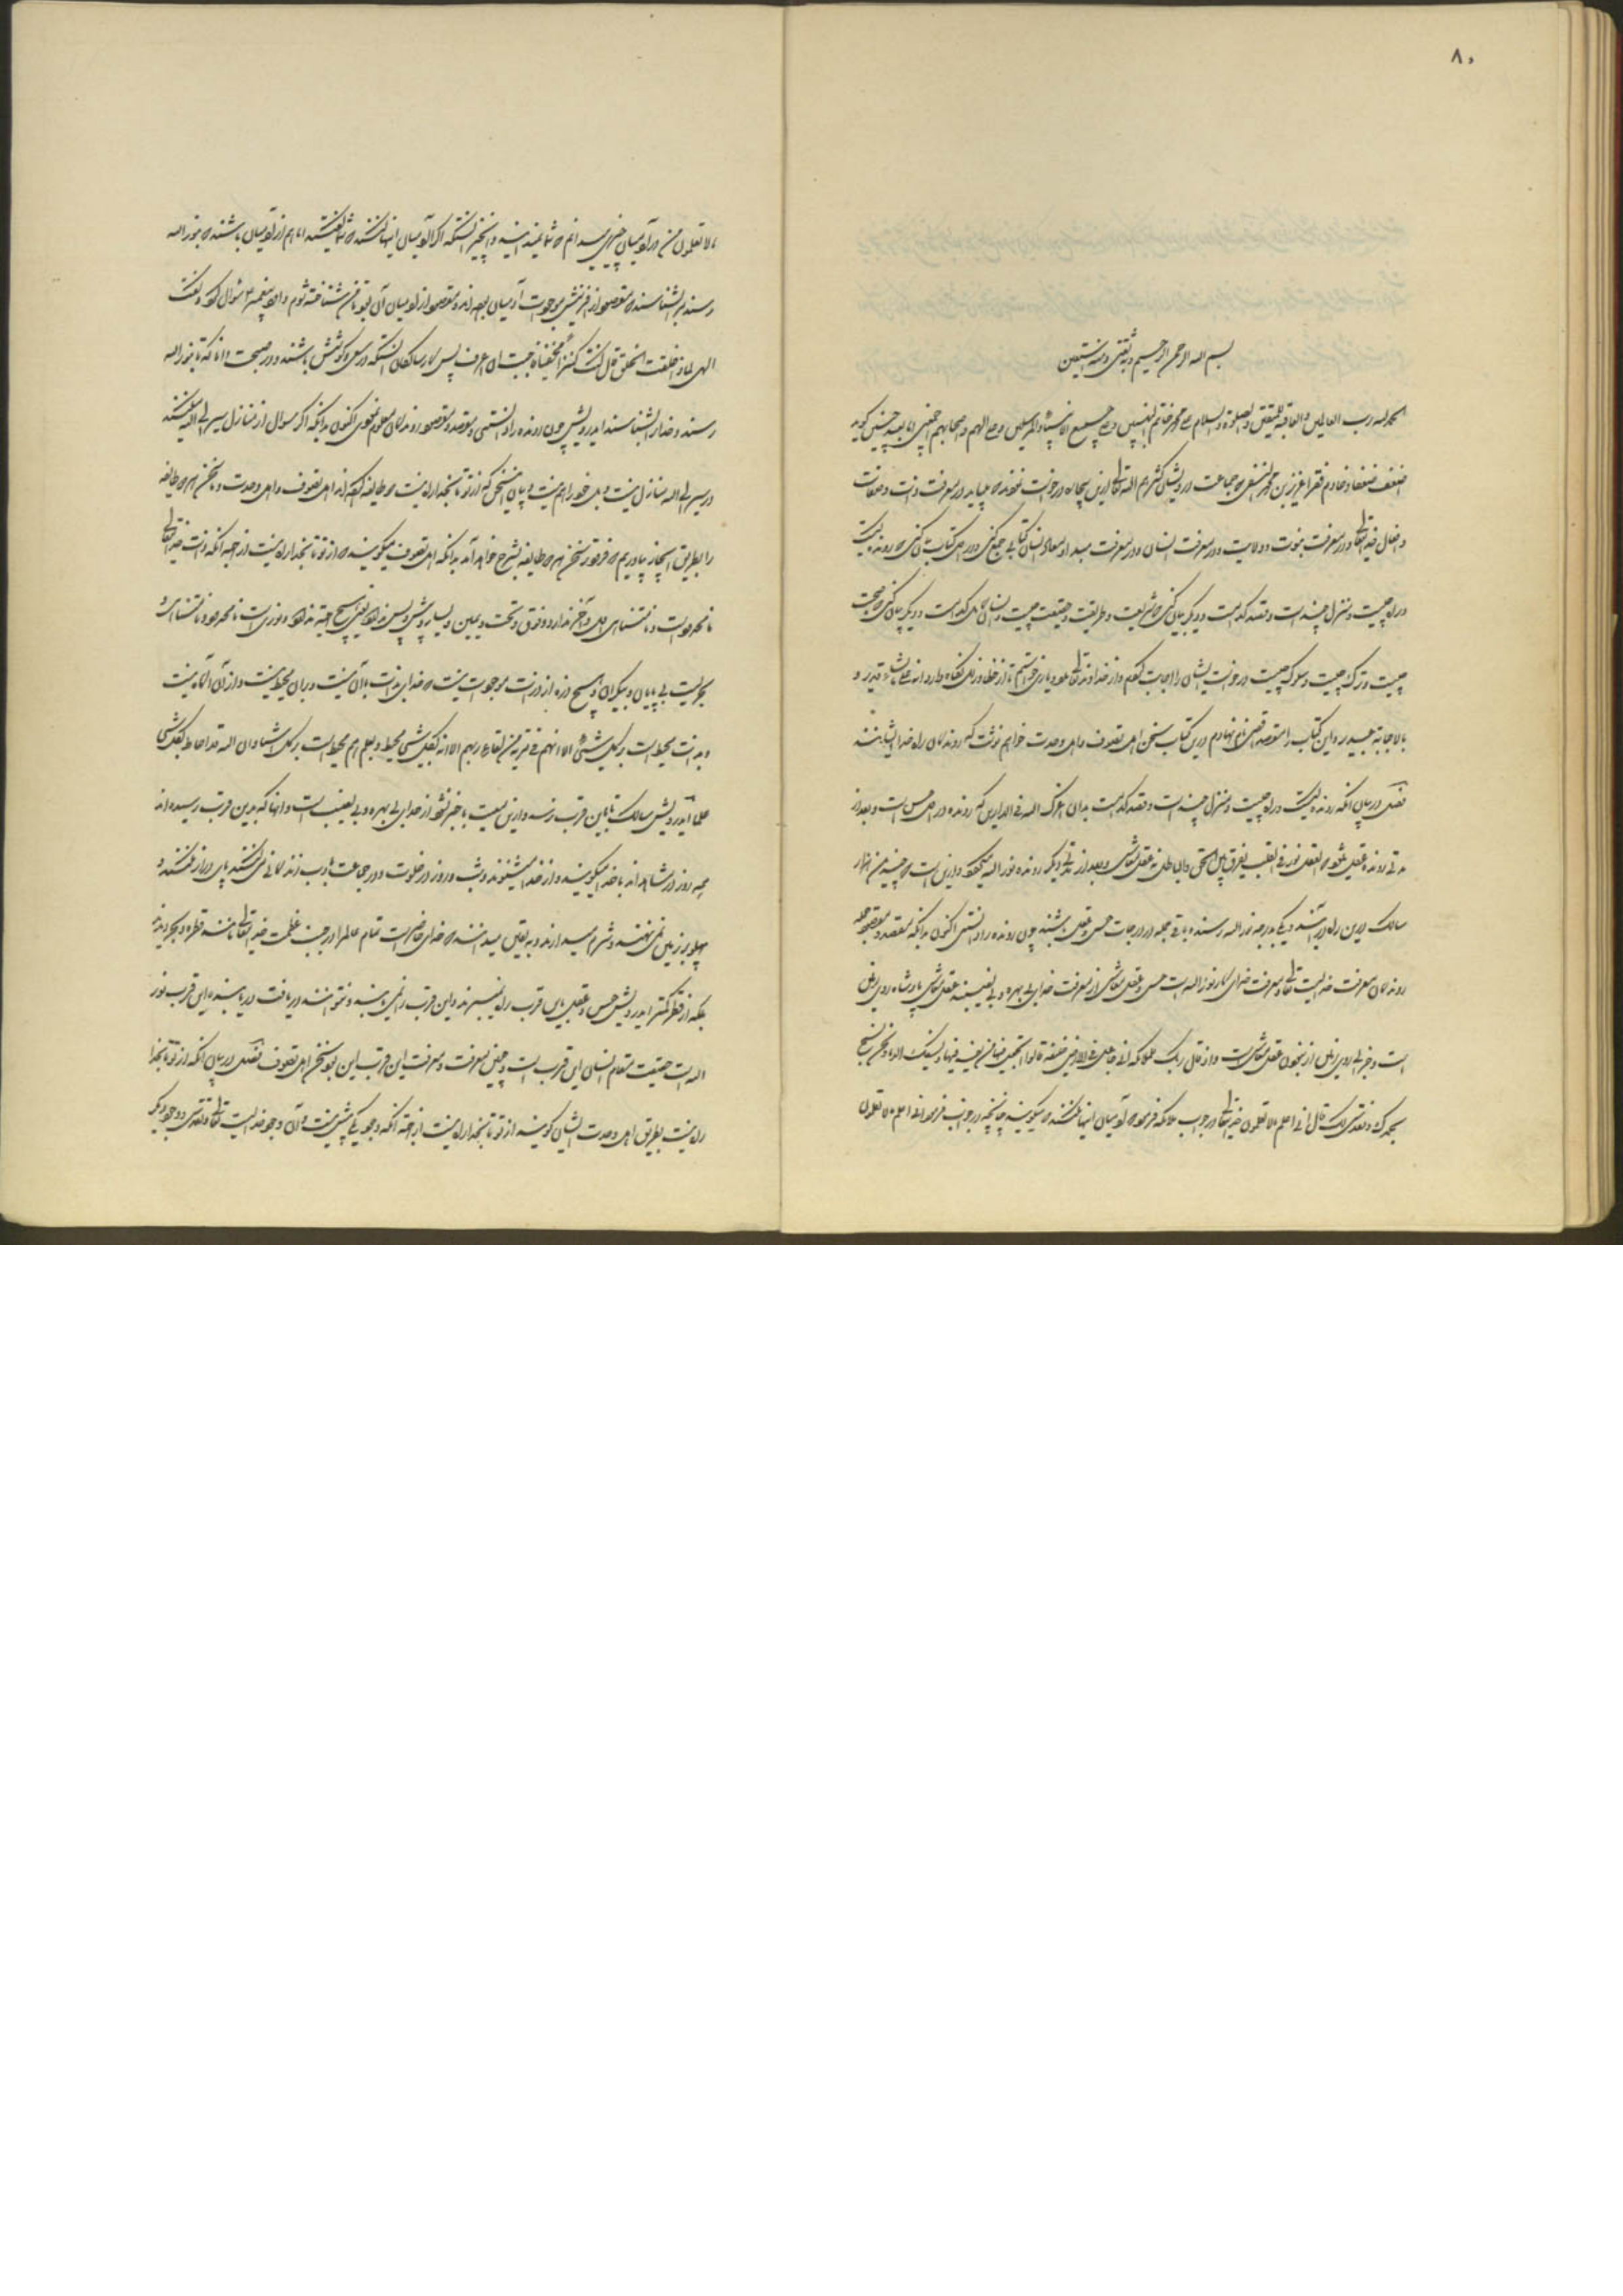 ۸۰
بسم الله الرحمن الرحیم و به ثقتی و منه نستعین
الحمد لله رب العالمین والعاقبة للمتقین والصلوة والسلام علی محمد خاتم النبیین و علی جمیع الانبیاء والمرسلین و علی آلهم و صحابهم اجمعین اما بعد چنین گوید
اضعف ضعفا و خادم فقرا عزیز بن محمد النسفی که جماعت درویشان کثرهم الله تعالی ازین بیچاره درخواست نمودند که میباید در معرفت ذات و صفات
و افعال خدایتعالی و در معرفت نبوت و ولایت و در معرفت انسان و در معرفت مبدا و معاد انسان کتابی جمع کنی و در اول کتاب بیان کنی که رونده کیست
و راه چیست و منزل چند است و مقصد کدامست و دیگر بیان کنی که شریعت و طریقت و حقیقت چیست و انسان کامل کدامست و دیگر بیان کنی که صحبت
چیست و ترک چیست و سلوک چیست درخواست ایشان را اجابت کردم و از خداوند تعالی مدد و یاری خواستم تا از خطا و زلل نگاه دارد انه علی ما یشاء قدیر و
بالاجابة جدیر و این کتاب را مقصد اقصی نام نهادم درین کتاب سخن اهل تصوف و اهل وحدت خواهم نوشت که روندگان راه خدا ایشانند
فصل در بیان آنکه رونده کیست و راه چیست و منزل چند است و مقصد کدامست بدان اعزک الله فی الدارین که رونده در اول حس است و بعد از
مدتی رونده عقل میشود که العقل نور فی القلب یفرق بین الحق والباطل نه عقل معاش و بعد از مدتی دیگر رونده نور الله میگردد و ازین است که چندین هزار
سالک درین راه درآیند و یکی بدرجه نور الله رسد و باقی جمله در درجات حس و عقل باشند چون رونده را دانستی اکنون بدانکه مقصد و مقصود جمله
روندگان معرفت خدایست تعالی و معرفت خدای کار نور الله است حس و عقل معاش از معرفت خدای بی بهره و بی نصیبند عقل معاش پادشاه روی زمین
است و خرابی روی زمین از بیخون عقل معاش است و اذ قال ربک للملائکة انی جاعل فی الارض خلیفة قالوا اتجعل فیها من یفسد فیها و یسفک الدماء و نحن نسبح
بحمدک و نقدس لک قال انی اعلم ما لا تعلمون خدایتعالی در جواب ملائکه فرمود که آدمیان اینها نکنند که میگویید چنانچه در جواب فرمود انی اعلم ما لا تعلمون
ما لا تعلمون من در آدمیان چیزی میدانم که شما نمیدانید و آنچیز آنستکه اگر آدمیان اینها کنند که شما گفتید اما هم از آدمیان باشند که بنور الله
رسند و مرا بشناسند که مقصود از آفرینش موجودات آدمیان بوده اند و مقصود از آدمیان آن بود تا من شناخته شوم داود پیغمبر سؤال کرد و گفت
الهی لماذا خلقت الخلق قال کنت کنزا مخفیا فاحببت ان اعرف پس کار سالکان آنستکه در سعی و کوشش باشند و در صحبت دانا که تا بنور الله
رسند و خدا را بشناسند ای درویش چون رونده را دانستی و مقصد و مقصود روندگان معلوم کردی اکنون بدانکه اگر سوال از منازل سیر الی الله میکنند
در سیر الی الله منازل نیست و بلکه خود راه هم نیست و بیان این سخن که از تو تا بخدا راه نیست دو طایفه کرده اند اهل تصوف و اهل وحدت و ما سخن هر دو طایفه
را بطریق ایجاز بیاوریم که فرمودند سخن هر دو طایفه بشرح خواهد آمد بدانکه اهل تصوف میگویند که از تو تا بخدا راه نیست از جهة آنکه ذات خدایتعالی
نامحدود است و نامتناهی اول و آخر ندارد و فوق و تحت و یمین و یسار و پیش و پس ندارد یعنی هیچ جهة ندارد نوریست نامحدود و نامتناهی و
بحریست بی پایان و بیکران و هیچ ذره از ذرات موجودات نیست که خدای بذات با آن نیست و بر آن محیط نیست و از آن آگاه نیست
و بذات محیط است بر کل شیئ الا انهم فی مریة من لقاء ربهم الا انه بکل شیئ محیط و بعلم هم محیط است بر کل اشیا و ان الله قد احاط بکل شیئ
علما ای درویش سالک تا باین قرب نرسد و ازین معیت با خبر نشود از خدای بی بهره و بی نصیب است و آنها که بدین قرب رسیده اند
همه روز در مشاهده اند با خدا میگویند و از خدا میشنوند و شب و روز در خلوت و در جماعت با ادب اند گاهی نمیکنند پای دراز نمیکنند و
پهلو بر زمین نمی نهند و شرم میدارند و به یقین میدانند که خدای حاضر است تمام عالم را در جنب عظمت خدایتعالی مانند قطره و بحر دیدند
بلکه از قطره کمتر ای درویش حس و عقل باین قرب راه نمیبرند و این قرب را نمی یابند و نتوانند دریافت دریابنده این قرب نور
الله است حقیقت مقام انسان این قرب است و چنین معرفت و معرفت این قرب این بود سخن اهل تصوف فصل در بیان آنکه از تو تا بخدا
راه نیست بطریق اهل وحدت ایشان گویند از تو تا بخدا راه نیست از جهة آنکه وجود یکی بیش نیست و آن وجود خدایست تعالی و تقدس و وجود دیگر